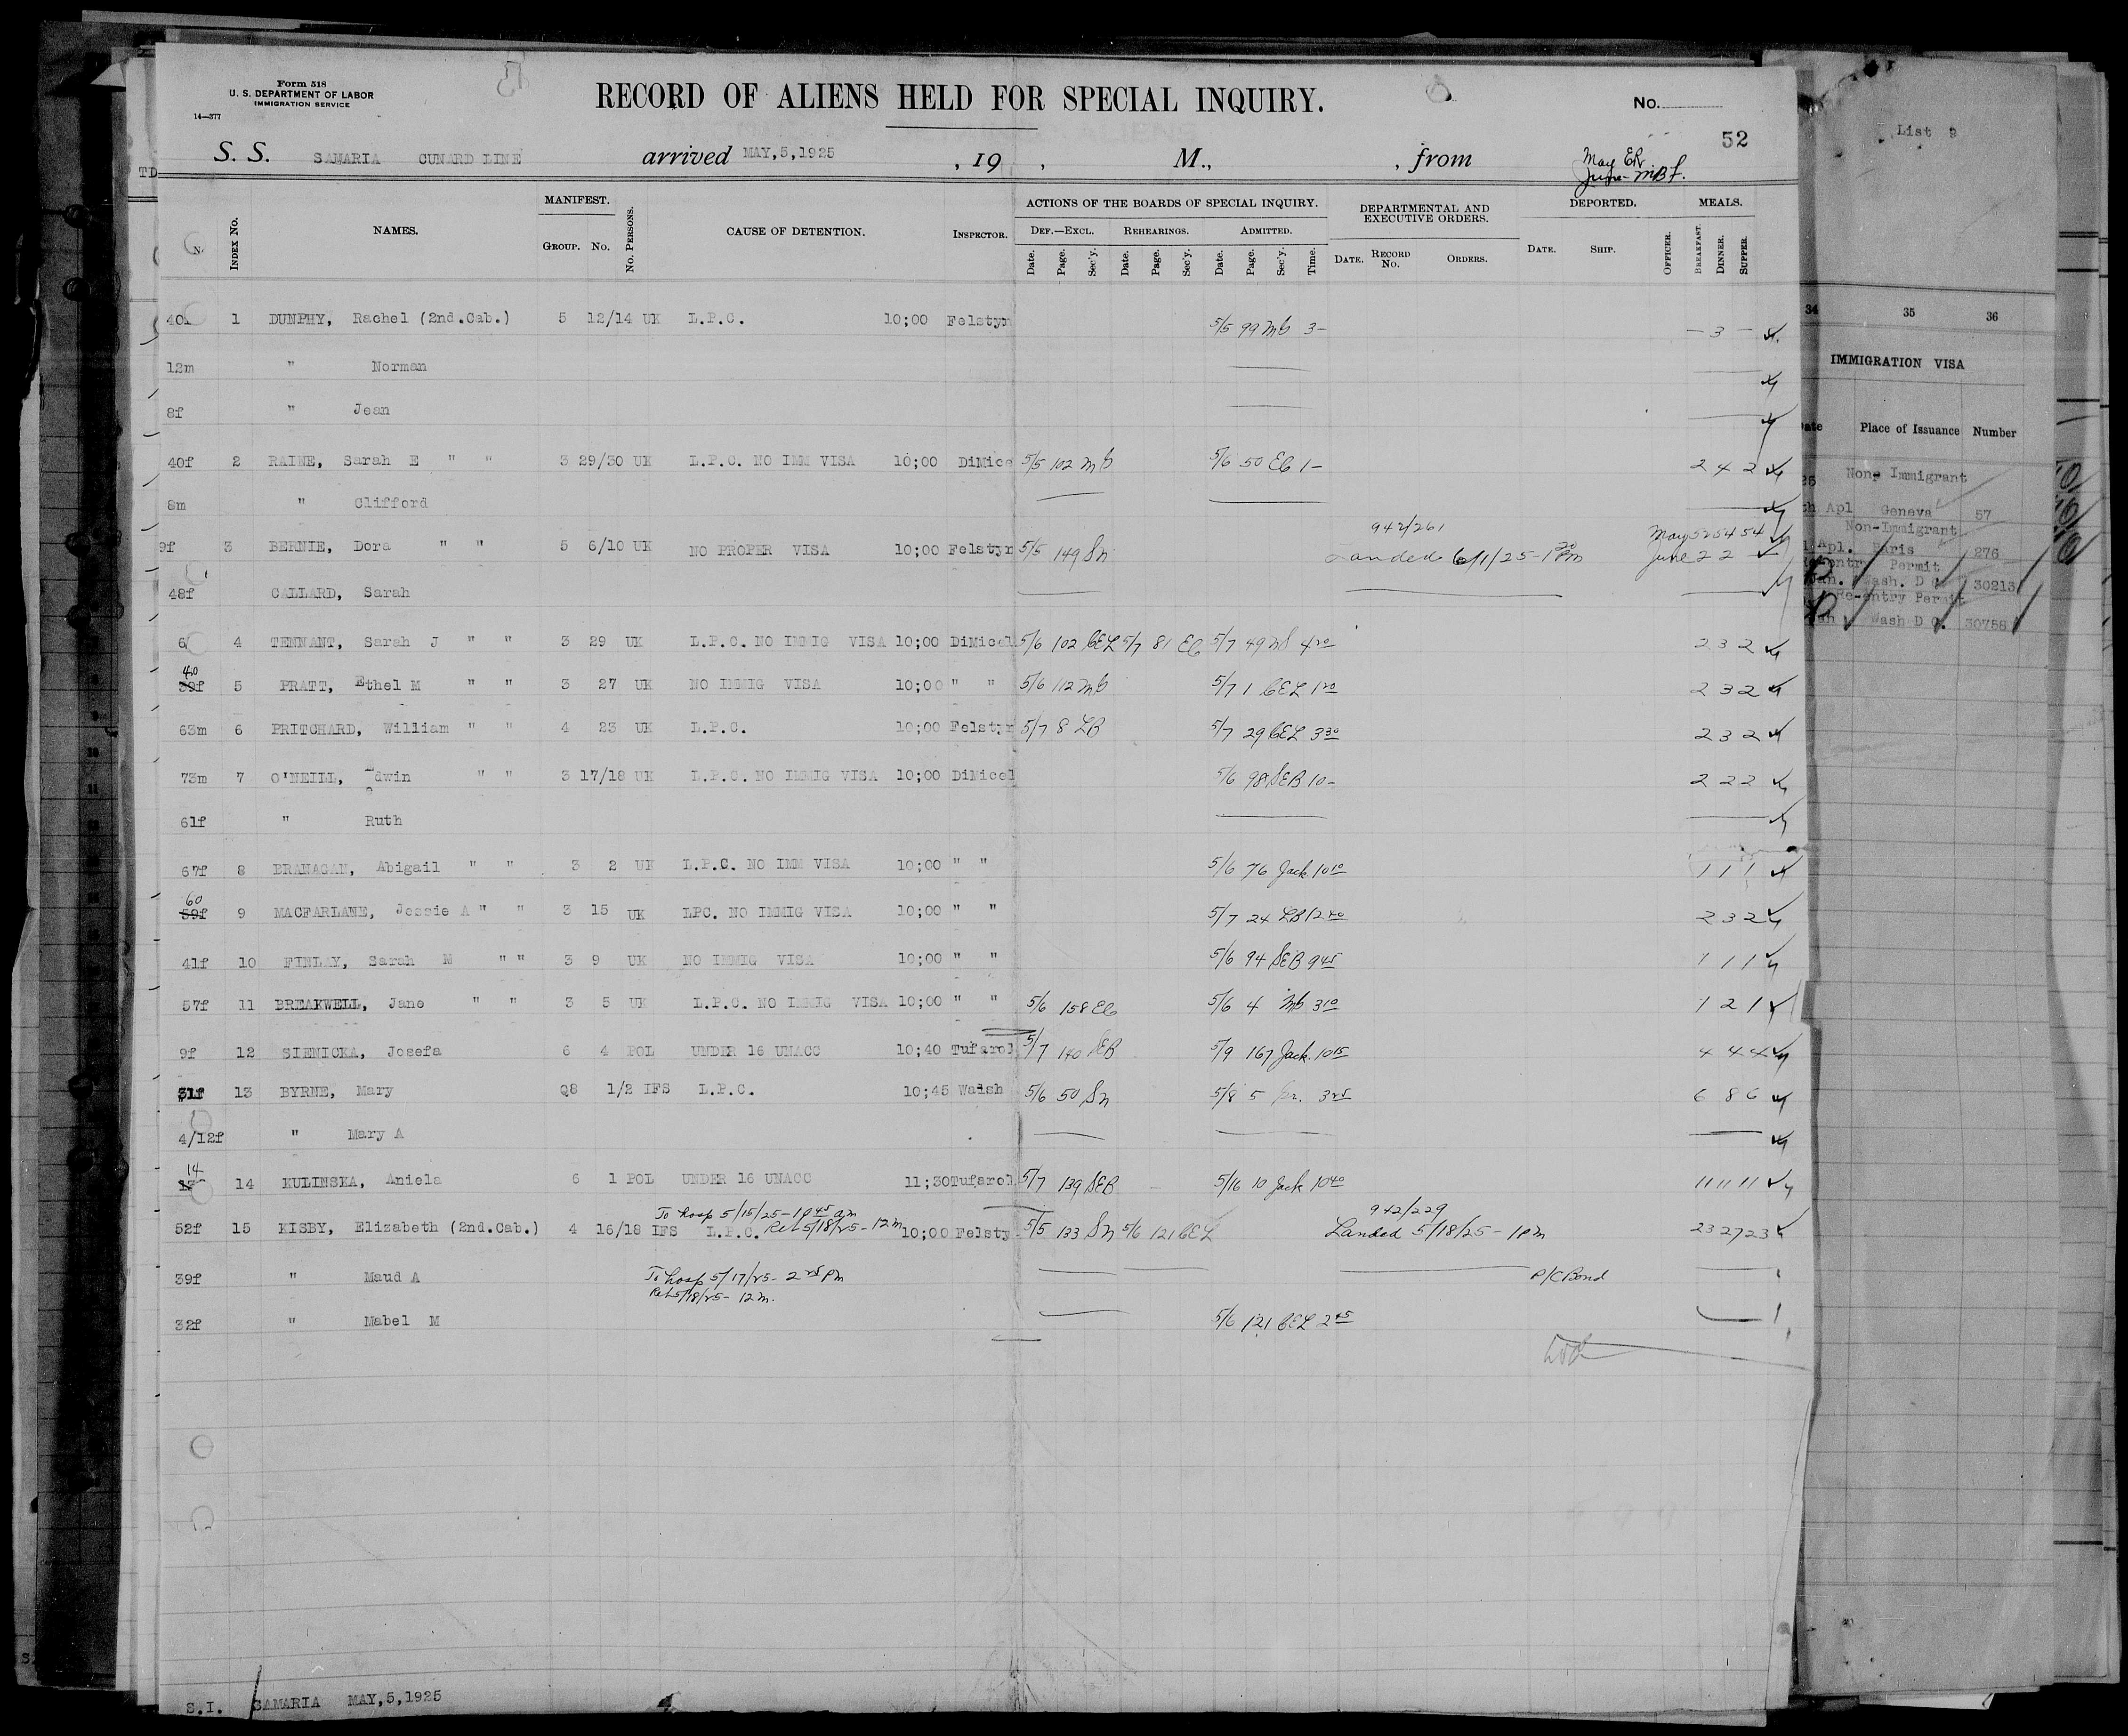 Form 518
U. S. DEPARTMENT OF LABOR
IMMIGRATION SERVICE
14—377
RECORD OF ALIENS HELD FOR SPECIAL INQUIRY.
No.
52
S. S. SAMARIA CUNARD LINE arrived MAY,5,1925 , 19 , M., , from
May ER
June- MBF.
TD
INDEX NO. NAMES. MANIFEST. GROUP. NO. NO. PERSONS. CAUSE OF DETENTION. INSPECTOR. ACTIONS OF THE BOARDS OF SPECIAL INQUIRY. DEPARTMENTAL AND EXECUTIVE ORDERS. DEPORTED. MEALS.
DEF.—EXCL. REHEARINGS. ADMITTED.
Date. Page. Sec'y. Date. Page. Sec'y. Date. Page. Sec'y. Time. DATE. RECORD NO. ORDERS. DATE. SHIP. OFFICER. BREAKFAST. DINNER. SUPPER.
40 1 DUNPHY, Rachel (2nd.Cab.) 5 12/14 UK L.P.C. 10;00 Felstyn 5/5 99 Mb 3- — 3 —
12m " Norman
8f " Jean
40f 2 RAINE, Sarah E " " 3 29/30 UK L.P.C. NO IMM VISA 10;00 DiMice 5/5 102 Mb 5/6 50 EG 1- 2 4 2
8m " Clifford
942/261
9f 3 BERNIE, Dora " " 5 6/10 UK NO PROPER VISA 10;00 Felstyn 5/5 149 Sn Landed 6/1/25-1 20 Pm May 52 54 54
June 2 2
48f CALLARD, Sarah
6 4 TENNANT, Sarah J " " 3 29 UK L.P.C. NO IMMIG VISA 10;00 DiMicel 5/6 102 CEL 5/7 81 EG 5/7 49 MS 4 20 2 3 2
40
39f 5 PRATT, Ethel M " " 3 27 UK NO IMMIG VISA 10;00 " " 5/6 112 Mb 5/7 1 CEL 1 20 2 3 2
63m 6 PRITCHARD, William " " 4 23 UK L.P.C. 10;00 Felstyn 5/7 8 LB 5/7 29 CEL 3 30 2 3 2
73m 7 O'NEILL, Edwin " " 3 17/18 UK L.P.C. NO IMMIG VISA 10;00 DiMicel 5/6 98 SEB 10- 2 2 2
61f " Ruth
67f 8 BRANAGAN, Abigail " " 3 2 UK L.P.C. NO IMM VISA 10;00 " " 5/6 76 Jack 10 10 1 1 1
60
59f 9 MACFARLANE, Jessie A " " 3 15 UK LPC. NO IMMIG VISA 10;00 " " 5/7 24 LB 12 40 2 3 2
41f 10 FINLAY, Sarah M " " 3 9 UK NO IMMIG VISA 10;00 " " 5/6 94 SEB 9 45 1 1 1
57f 11 BREAKWELL, Jane " " 3 5 UK L.P.C. NO IMMIG VISA 10;00 " " 5/6 158 EG 5/6 4 Mb 3 10 1 2 1
9f 12 SIENICKA, Josefa 6 4 POL UNDER 16 UNACC 10;40 Tufarol 5/7 140 SEB 5/9 167 Jack 10 15 4 4 4
31f 13 BYRNE, Mary Q8 1/2 IFS L.P.C. 10;45 Walsh 5/6 50 Sn 5/8 5 3 25 6 8 6
4/12f " Mary A
14
13 14 KULINSKA, Aniela 6 1 POL UNDER 16 UNACC 11;30 Tufarol 5/7 139 SEB 5/16 10 Jack 10 40 11 11 11
To hosp 5/15/25-10 45 am 942/229
52f 15 KISBY, Elizabeth (2nd.Cab.) 4 16/18 IFS L.P.C. Ret 5/18/25-12 m 10;00 Felsty 5/5 133 Sn 5/6 121 CEL Landed 5/18/25-1 pm 23 27 23
39f " Maud A To hosp 5/17/25-2 25 pm P/C Bond
Ret 5/18/25-12 m.
32f " Mabel M 5/6 121 CEL 2 45
S.I. SAMARIA MAY,5,1925
List 9
34 35 36
IMMIGRATION VISA
Date Place of Issuance Number
25 Non- Immigrant
Apl Geneva 57
Non-Immigrant
Apl. Paris 276
Re-entry Permit
Jan. Wash. D C. 30213
Re-entry Permit
Jan Wash D C. 30758